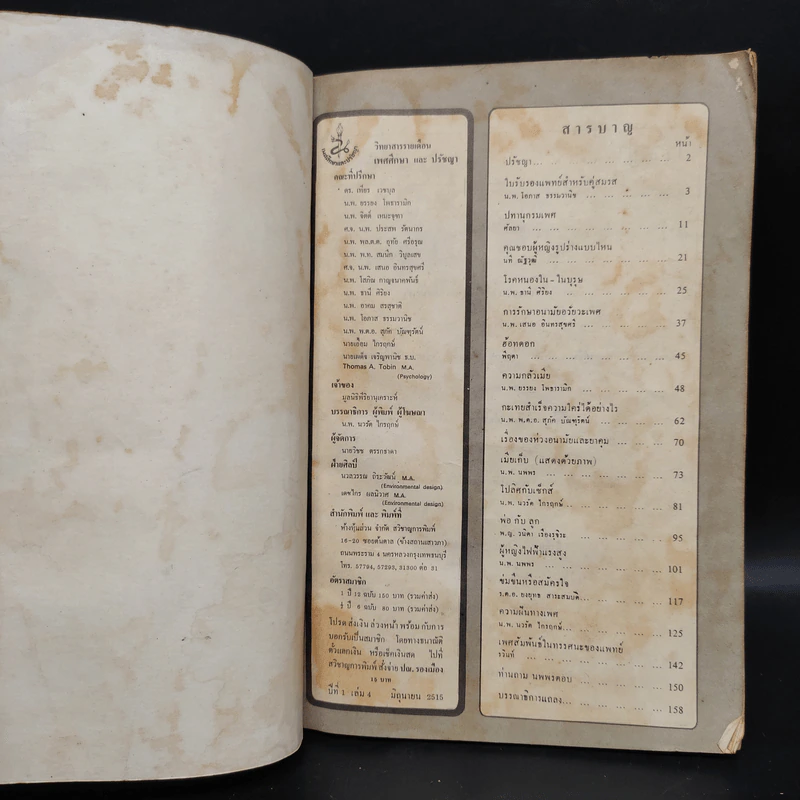 วิทยาสารรายเดือน
เพศศึกษา และ ปรัชญา
คณะที่ปรึกษา
ดร. เพียร เวชบุล
น.พ. ยรรยง โพธารามิก
น.พ. จิตต์ เหมะจุฑา
ศ.จ. น.พ. ประสพ รัตนากร
น.พ. พล.ต.ต. อุทัย ศรีอรุณ
น.พ. พ.ท. สมนึก วิบูลเสข
ศ.จ. น.พ. เสนอ อินทรสุขศรี
น.พ. โสภิณ กาญจนาคพันธ์
น.พ. ธานี ศิริยง
น.พ. อาคม สรสุชาติ
น.พ. โอภาส ธรรมวานิช
น.พ. พ.ต.อ. สุภัค บัณฑุรัตน์
นายเยื้อม ไกรฤกษ์
นายเผด็จ เจริญพานิช ธ.บ.
Thomas A. Tobin M.A.
(Psychology)
เจ้าของ
มูลนิธิพีริยานุเคราะห์
บรรณาธิการ ผู้พิมพ์ ผู้โฆษณา
น.พ. นวรัต ไกรฤกษ์
ผู้จัดการ
นายวิชช ตรรกธาดา
ฝ่ายศิลป์
นวลวรรณ ถิระวัฒน์ M.A.
(Environmental design)
เดชไกร ผลนิวาศ M.A.
(Environmental design)
สำนักพิมพ์ และ พิมพ์ที่
ห้างหุ้นส่วน จำกัด สวิชาญการพิมพ์
16-20 ซอยต้นตาล (ข้างสถานเสาวภา)
ถนนพระราม 4 นครหลวงกรุงเทพธนบุรี
โทร. 57794, 57295, 31300 ต่อ 31
อัตราสมาชิก
1 ปี 12 ฉบับ 150 บาท (รวมค่าส่ง)
½ ปี 6 ฉบับ 80 บาท (รวมค่าส่ง)
โปรด ส่งเงิน ล่วงหน้า พร้อม กับการ
บอกรับเป็นสมาชิก โดยทางธนาณัติ
ตั๋วแลกเงิน หรือเช็คเงินสด ไปที่
สวิชาญการพิมพ์ สั่งจ่าย ปณ. รองเมือง
15 บาท
ปีที่ 1 เล่ม 4 มิถุนายน 2515
สารบาญ
หน้า
ปรัชญา... ... ... ... ... 2
ใบรับรองแพทย์สำหรับคู่สมรส
น.พ. โอภาส ธรรมวานิช ... ... ... ... 3
ปทานุกรมเพศ
ศัลยา ... ... ... ... ... 11
คุณชอบผู้หญิงรูปร่างแบบไหน
นที ณัฐวุฒิ ... ... ... ... ... 21
โรคหนองใน - ในบุรุษ
น.พ. ธานี ศิริยง ... ... ... ... ... 25
การรักษาอนามัยอวัยวะเพศ
น.พ. เสนอ อินทรสุขศรี ... ... ... ... 37
ฮ้อทดอก
พิฤดา ... ... ... ... ... 45
ความกลัวเมีย
น.พ. ยรรยง โพธารามิก ... ... ... ... 48
กะเทยสำเร็จความใคร่ได้อย่างไร
น.พ. พ.ต.อ. สุภัค บัณฑุรัตน์ ... ... ... 62
เรื่องของห่วงอนามัยและยาคุม ... ... ... 70
เมียเก็บ (แสดงด้วยภาพ)
น.พ. นพพร ... ... ... ... 73
โปลิศกับเซ็กส์
น.พ. นวรัต ไกรฤกษ์... ... ... ... 81
พ่อ กับ ลูก
พ.ญ. วนิดา เรืองรุจิระ ... ... ... ... 95
ผู้หญิงไฟฟ้าแรงสูง
น.พ. นพพร ... ... ... ... 101
ข่มขืนหรือสมัครใจ
ร.ต.อ. ยงยุทธ สาระสมบัติ... ... ... ... 117
ความผืนทางเพศ
น.พ. นวรัต ไกรฤกษ์... ... ... ... 125
เพศสัมพันธ์ในทรรศนะของแพทย์
วรินท์ ... ... ... ... ... 142
ท่านถาม นพพรตอบ ... ... ... ... 150
บรรณาธิการแถลง... ... ... ... 158